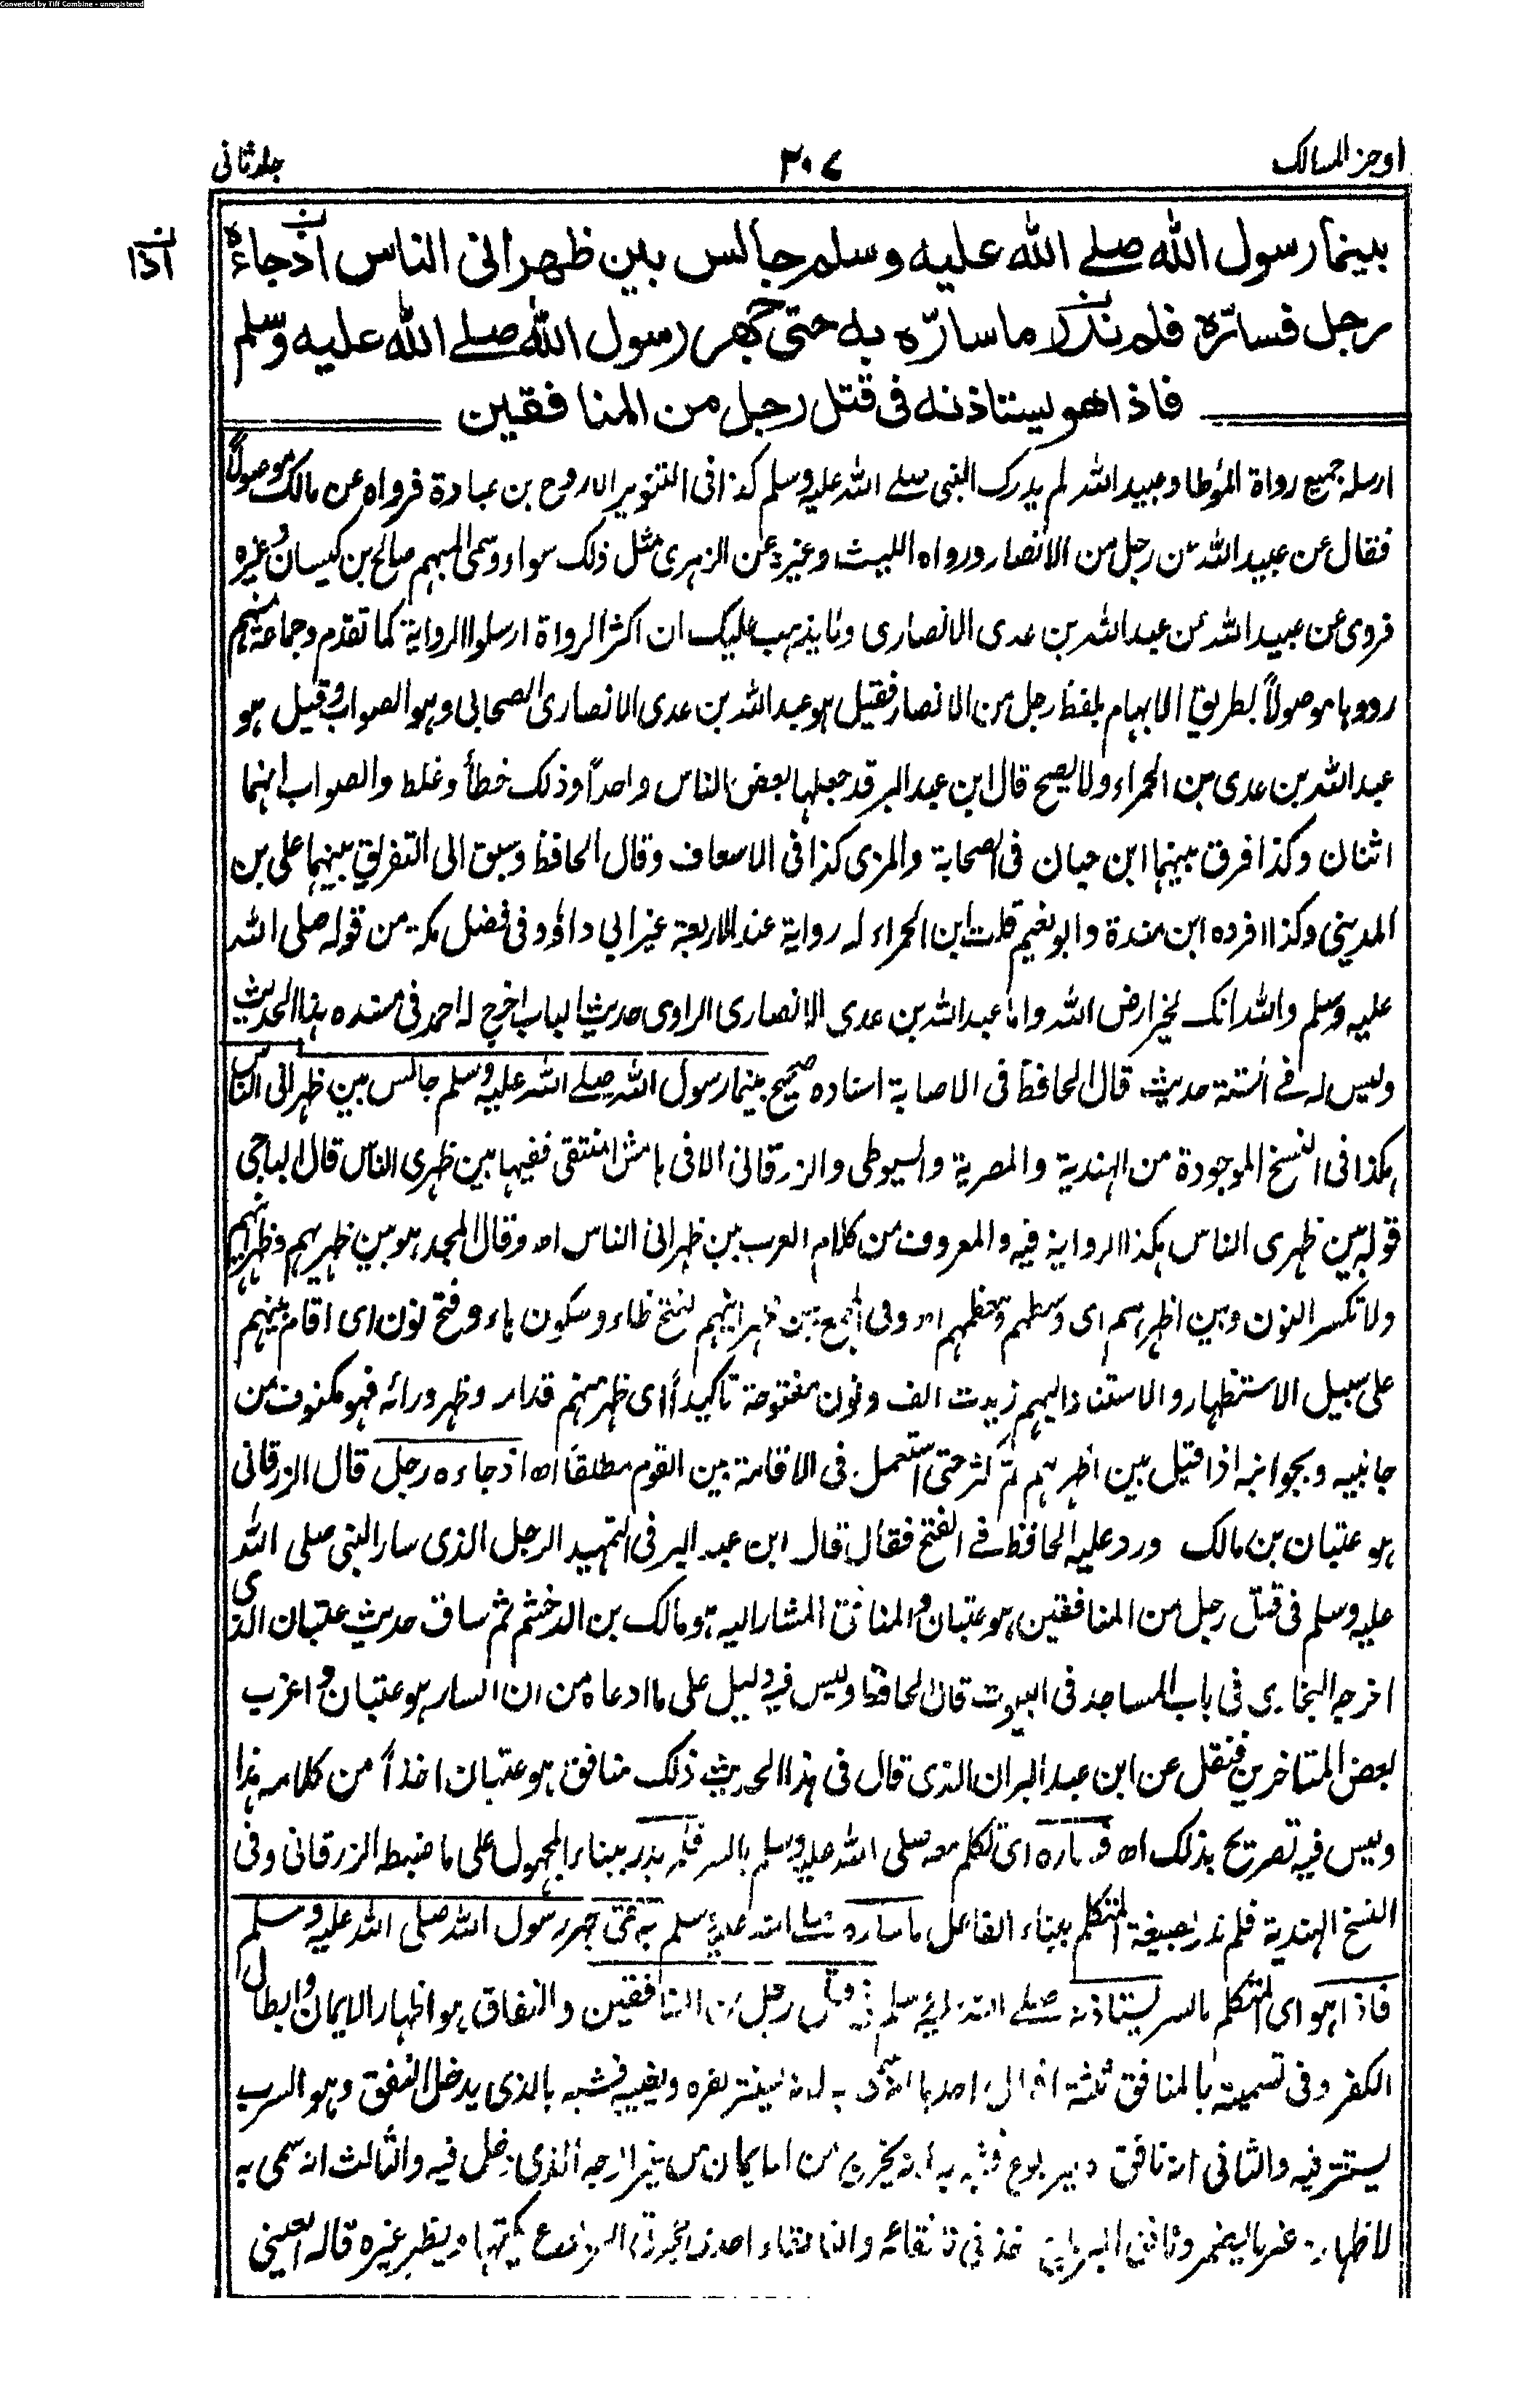 Converted by Tiff Combine - unregistered
اوجز المسالك ٣٠٧ جلد ثانی
بینما رسول الله صلے الله علیه وسلم جالس بین ظهرانی الناس اذ جاءه
اذا
رجل فسارّه فلم ندر ما سارّه به حتی جهر رسول الله صلے الله علیه وسلم
فاذا هو یستاذنه فی قتل رجل من المنافقین
ارسله جمیع رواة المؤطا وعبید الله لم یدرک النبی صلے الله علیه وسلم کذا فی التنویر الا روح بن عبادة فرواه عن مالک موصولاً
فقال عن عبید الله عن رجل من الانصار ورواه اللیث وغیره عن الزهری مثل ذلک سواء وسمی المبهم صالح بن کیسان وغیره
فروی عن عبید الله عن عبد الله بن عدی الانصاری ولا یذهب علیک ان اکثر الرواة ارسلوا الروایة کما تقدم وجماعة منهم
رووها موصولاً بطریق الابهام بلفظ رجل من الانصار فقیل هو عبد الله بن عدی الانصاری الصحابی وهو الصواب وقیل هو
عبد الله بن عدی بن الحمراء ولا یصح قال ابن عبد البر قد جعلهما بعض الناس واحداً وذلک خطأ وغلط والصواب انهما
اثنان وکذا فرق بینهما ابن حبان فی الصحابة والمزی کذا فی الاسعاف وقال الحافظ وسبق الی التفریق بینهما علی بن
المدینی وکذا افرده ابن مندة وابو نعیم قلت ابن الحمراء له روایة عند الاربعة غیر ابی داؤد فی فضل مکة من قوله صلی الله
علیه وسلم والله انک لخیر ارض الله واما عبد الله بن عدی الانصاری الراوی حدیث الباب اخرج له احمد فی مسنده هذا الحدیث
ولیس له فے الستة حدیث قال الحافظ فی الاصابة اسناده صحیح بینما رسول الله صلے الله علیه وسلم جالس بین ظهرانی الناس
هکذا فی النسخ الموجودة من الهندیة والمصریة والسیوطی والزرقانی الا فی هامش المنتقی ففیها بین ظهری الناس قال الباجی
قوله بین ظهری الناس هکذا الروایة فیه والمعروف من کلام العرب بین ظهرانی الناس اه وقال المجد هو بین ظهریهم وظهرانیهم
ولا تکسر النون وبین اظهرهم ای وسطهم ومعظمهم اه وفی المجمع بین ظهرانیهم بفتح ظاء وسکون هاء وفتح نون ای اقام بینهم
علی سبیل الاستظهار والاستناد الیهم زیدت الف ونون مفتوحة تاکیداً ای ظهر منهم قدامه وظهر ورائه فهو مکنوف من
جانبیه وبجوانبه اذا قیل بین اظهرهم ثم کثر حتی استعمل فی الاقامة بین القوم مطلقاً اه اذ جاءه رجل قال الزرقانی
هو عتبان بن مالک ورد علیه الحافظ فے الفتح فقال قال ابن عبد البر فی التمهید الرجل الذی سار النبی صلی الله
علیه وسلم فی قتل رجل من المنافقین هو عتبان والمنافق المشار الیه هو مالک بن الدخشم ثم ساق حدیث عتبان الذی
اخرجه البخاری فی باب المساجد فی البیوت قال الحافظ ولیس فیه دلیل علی ما ادعاه من ان السار هو عتبان واغرب
بعض المتاخرین فنقل عن ابن عبد البر ان الذی قال فی هذا الحدیث ذلک منافق هو عتبان اخذاً من کلامه هذا
ولیس فیه تصریح بذلک اه فساره ای تکلم معه صلی الله علیه وسلم بالسر فلم یدر ببناء المجهول علی ما ضبطه الزرقانی وفی
النسخ الهندیة فلم ندر بصیغة المتکلم ببناء الفاعل ما ساره صلے الله علیه وسلم به حتی جهر رسول الله صلی الله علیه وسلم
فاذا هو ای المتکلم بالسر یستاذنه صلے الله علیه وسلم فی قتل رجل من المنافقین والنفاق هو اظهار الایمان وابطال
الکفر وفی تسمیته بالمنافق ثلثة اقوال احدها انه سمی به لانه یستر کفره ویغیبه فشبه بالذی یدخل النفق وهو السرب
یستتر فیه والثانی انه نافق کالیربوع فشبه به لانه یخرج من الایمان من غیر الوجه الذی دخل فیه والثالث انه سمی به
لاظهاره غیر ما یضمر ... فی نافقائه والنافقاء احدی ... یکتمها ویظهر غیره قاله العینی